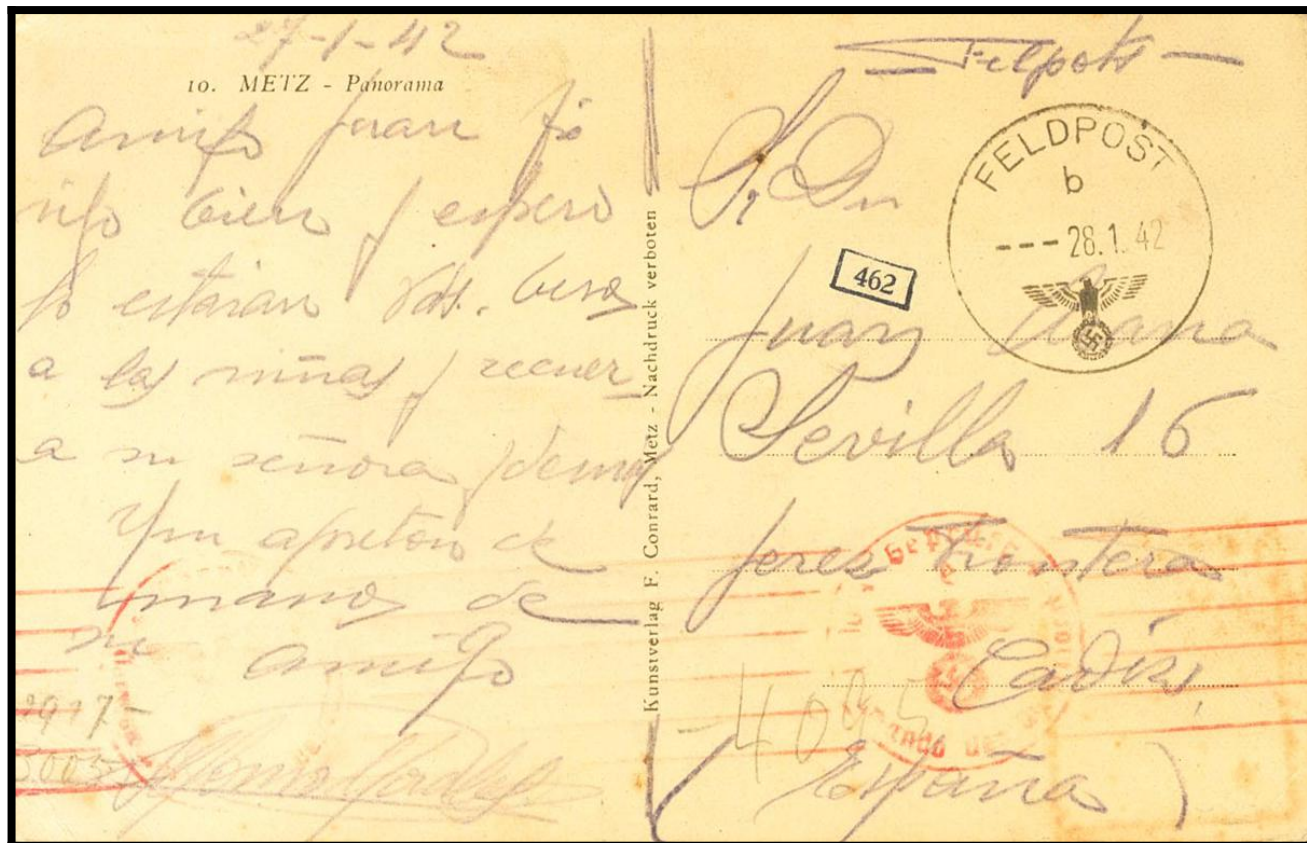 27-1-42
10. METZ - Panorama
Amigo Juan si
sigo bien y espero
lo estaran Vds. besos
a las niñas y recuer
a su señora y demas
Y un apreton de
manos de
su amigo
Kunstverlag F. Conrard, Metz - Nachdruck verboten
Felpots
FELDPOST
b
--- 28.1.42
462
Sr Dn
Juan
Sevilla 16
Jerez Frontera
Cadiz
(España)